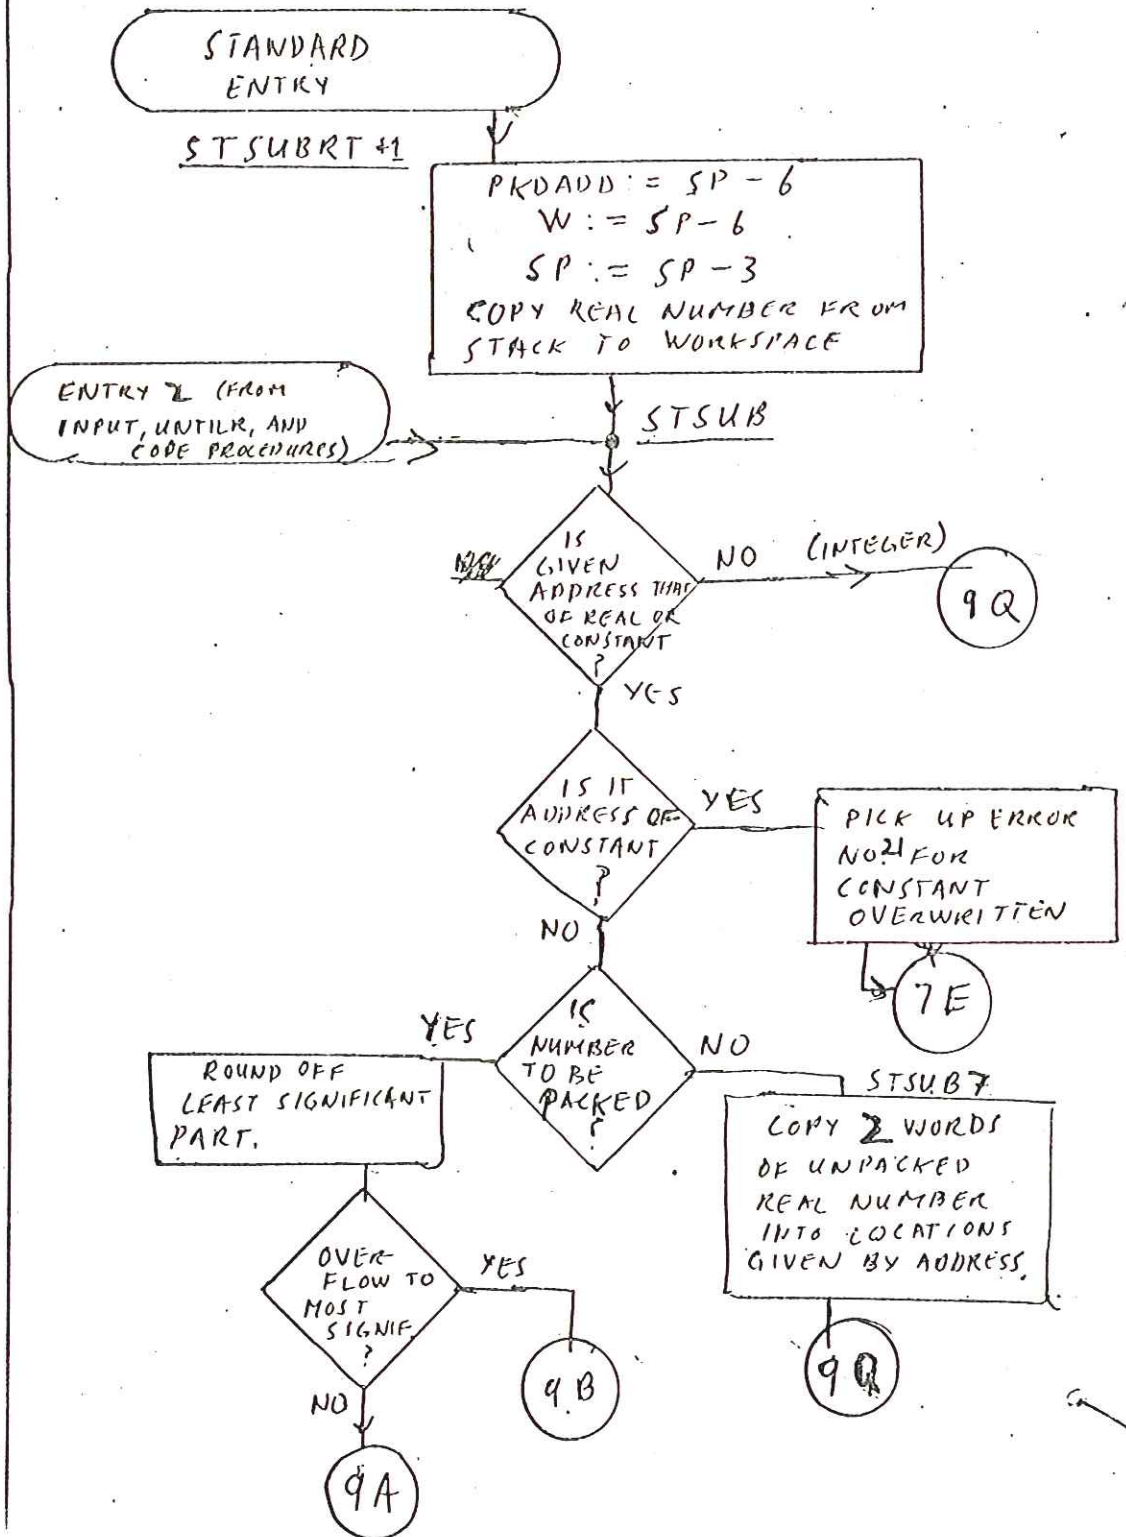 STANDARD
ENTRY
STSUBRT+1
PKDADD := SP - 6
W := SP - 6
SP := SP - 3
COPY REAL NUMBER FROM
STACK TO WORKSPACE
ENTRY 2 (FROM
INPUT, UNTILR, AND
CODE PROCEDURES)
STSUB
IS
GIVEN
ADDRESS THAT
OF REAL OR
CONSTANT
?
NO (INTEGER)
9Q
YES
IS IT
ADDRESS OF
CONSTANT
?
YES
PICK UP ERROR
NO. 21 FOR
CONSTANT
OVERWRITTEN
NO
7E
IS
NUMBER
TO BE
PACKED
?
YES
NO
ROUND OFF
LEAST SIGNIFICANT
PART.
STSUB7
COPY 2 WORDS
OF UNPACKED
REAL NUMBER
INTO LOCATIONS
GIVEN BY ADDRESS.
OVER-
FLOW TO
MOST
SIGNIF.
?
YES
NO
9B
9Q
9A